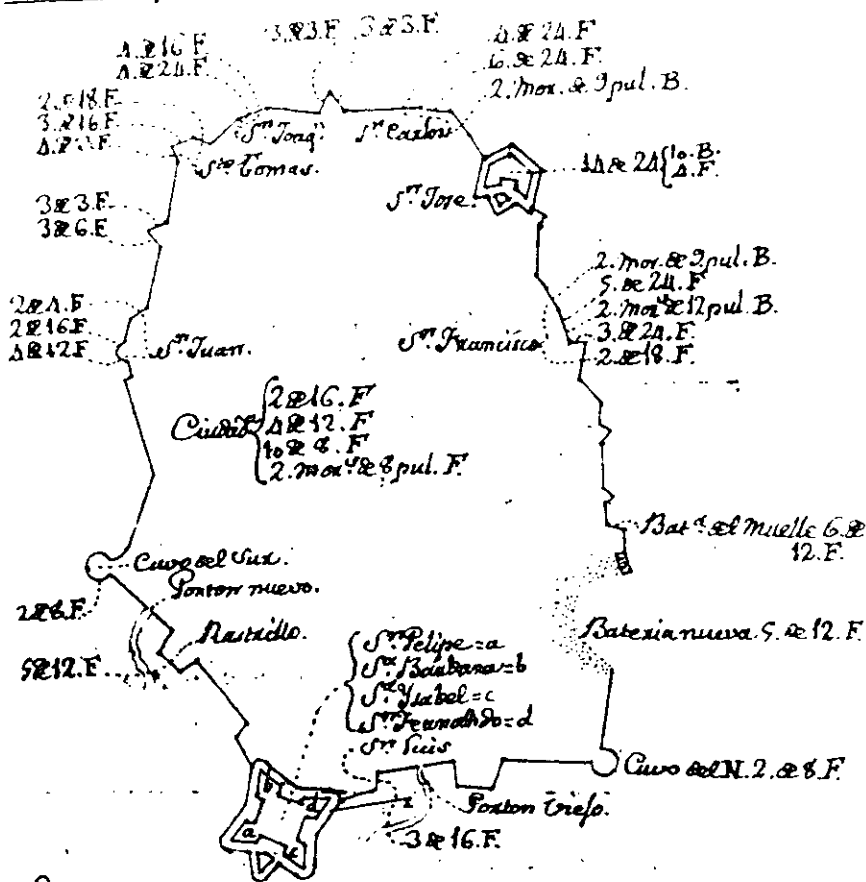 3 de 3. F. 3 de 3. F.
4 de 16 F
4 de 24. F.
4 de 24. F
6. de 24. F.
2. mor. de 9 pul. B.
2. de 18. F.
3. de 16. F
Sn. Joaqn.
Sn. Carlos
Sto. Tomas.
14 de 24 { 10. B.
4. F.
Sn. Jose.
3 de 3. F
3 de 6. F
2. mor. de 9 pul. B.
5. de 24. F
2. mors. de 12 pul. B
3. de 24. F.
2. de 18. F.
2 de 4. F
2 de 16 F.
4 de 12. F
Sn. Juan.
Sn. Francisco
Ciudad { 2 de 16. F
4 de 12. F
10 de 8. F
2. mors. de 8 pul. F.
Bata. del Muelle 6. de
12. F.
Cuvo del Sur.
Porton nuevo.
2 de 8. F
Rastrillo.
5 de 12. F
Bateria nueva. 5. de 12. F
Sn. Felipe = a
Sta. Bárbara = b
Sta. Ysabel = c
Sn. Fernando = d
Sn. Luis
Cuvo del N. 2. de 8. F.
Porton viejo.
3 de 16. F.
b
d
a
c